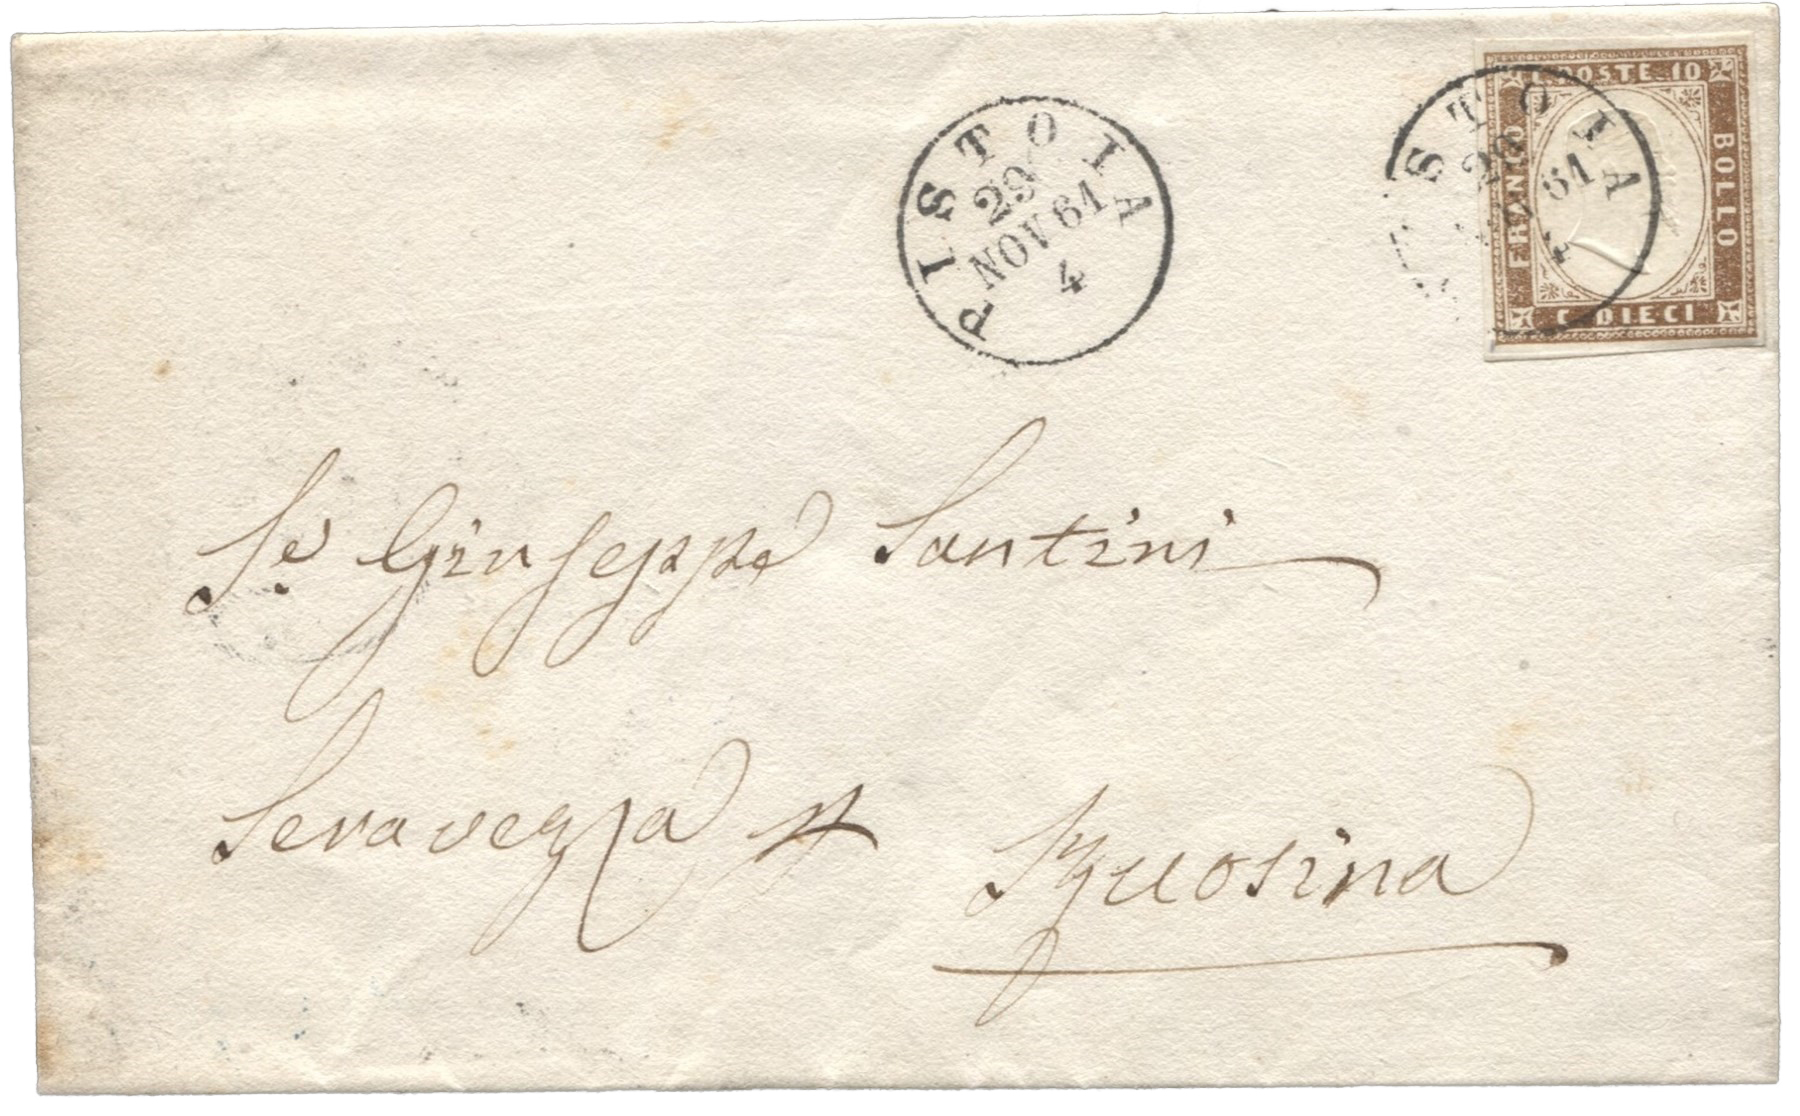 PISTOIA
29
NOV 61
4
C. POSTE 10
FRANCO
BOLLO
C. DIECI
STOIA
29
61
Sr Giuseppe Santini
Seravezza